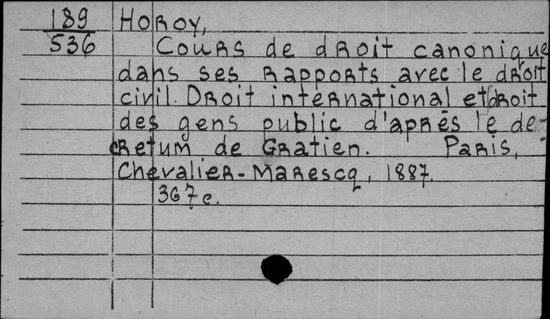 189 Horoy,
536 Cours de droit canonique
dans ses rapports avec le droit
civil. Droit international et droit
des gens public d'après le de-
cretum de Gratien. Paris,
Chevalier-Marescq, 1887.
367 c.